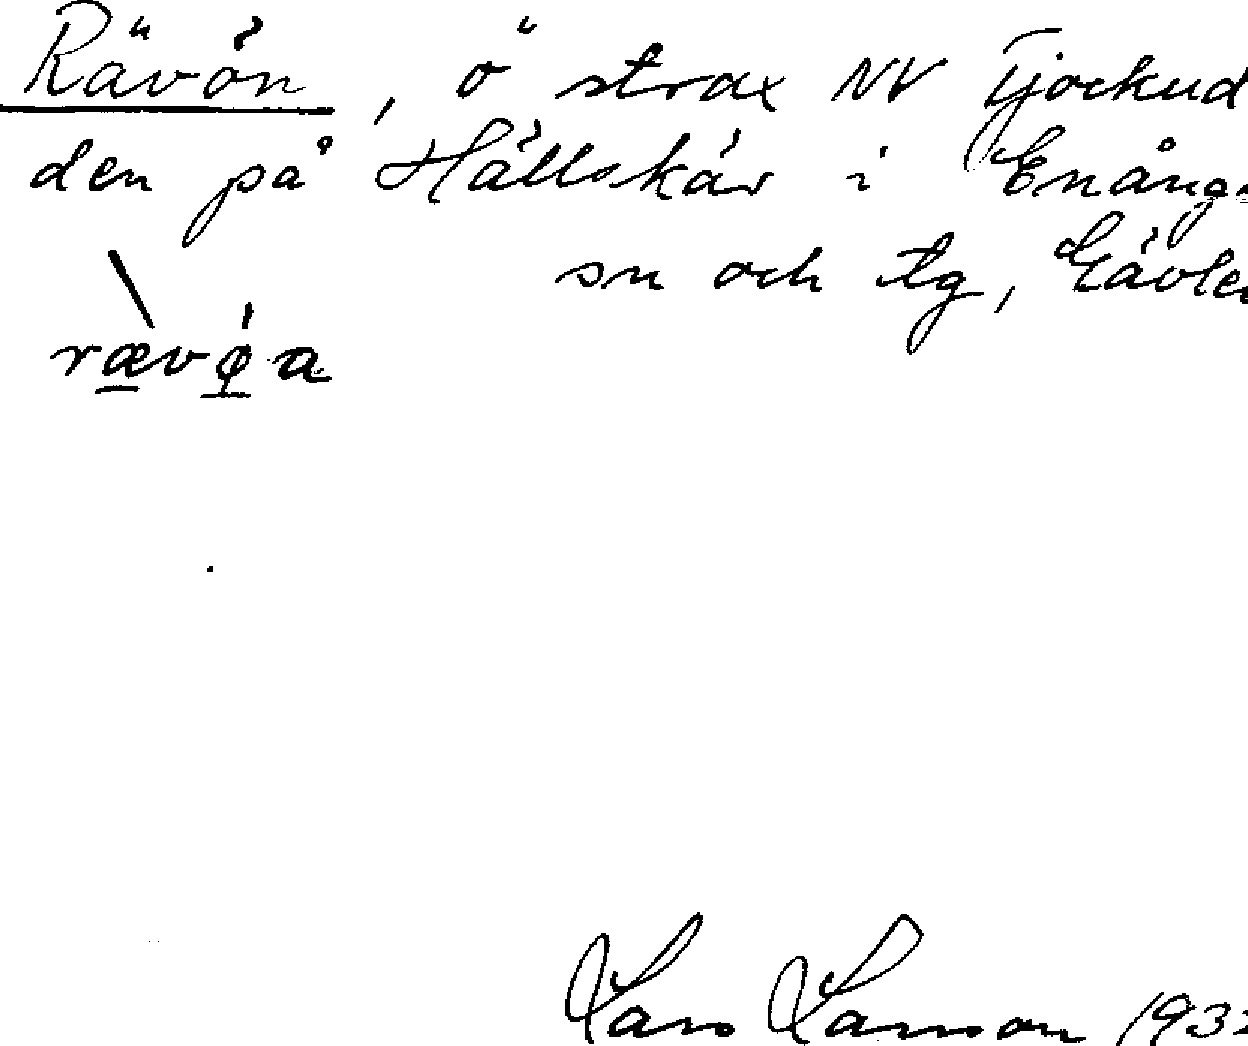 Rävön, ö strax NV Tjockud
den på Hällskär i Enång
sn och tg, Gävle
rævø̱a
Lars Larsson 193